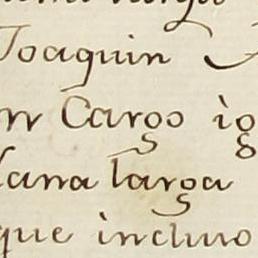 Joaquin
Cargo ig
lana larga
que incluio